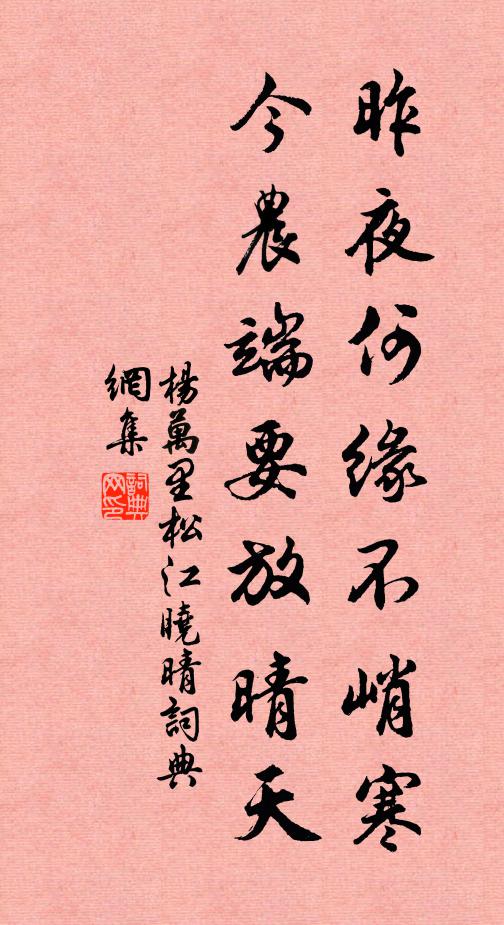 昨夜何緣不峭寒
今晨端要放晴天
楊萬里松江曉晴詞典
網集
詞典
网印